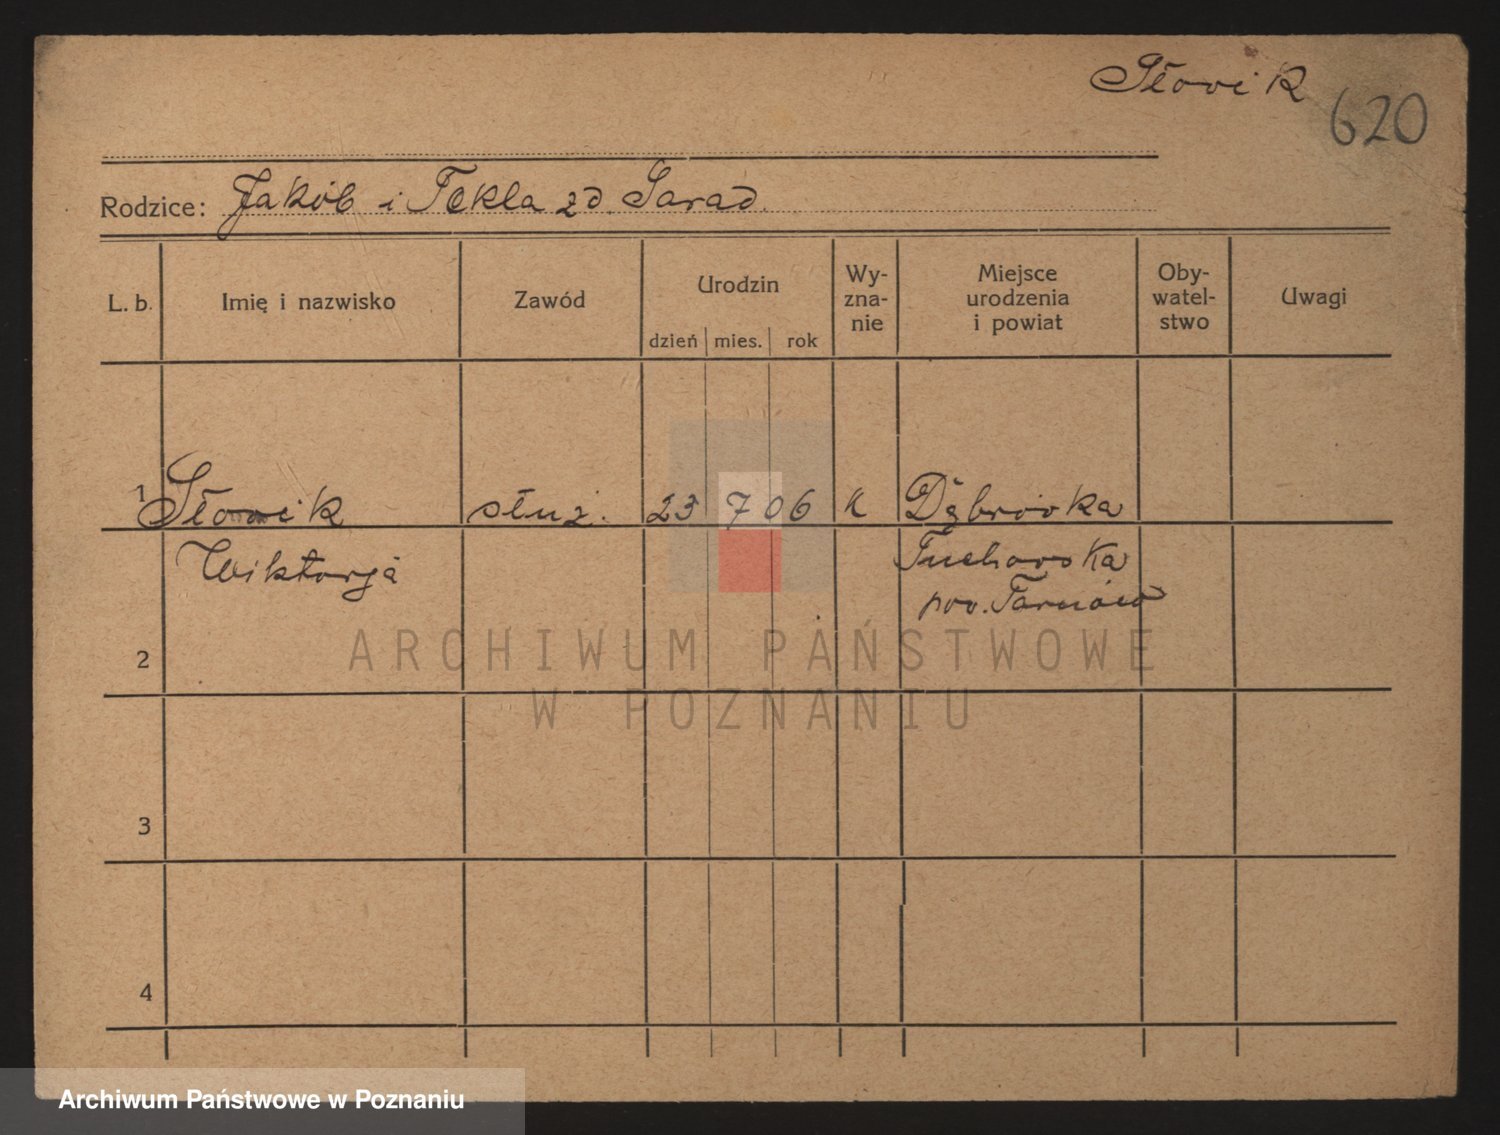 Słowik
620
Rodzice: Jakób i Tekla zd. Sarad
L. b.
Imię i nazwisko
Zawód
Urodzin
dzień mies. rok
Wy-
zna-
nie
Miejsce
urodzenia
i powiat
Oby-
watel-
stwo
Uwagi
1 Słowik służ. 23 7 06 k Dąbrówka
Wiktorja Tuchowska
pow. Tarnów
2
3
4
ARCHIWUM PAŃSTWOWE
W POZNANIU
Archiwum Państwowe w Poznaniu